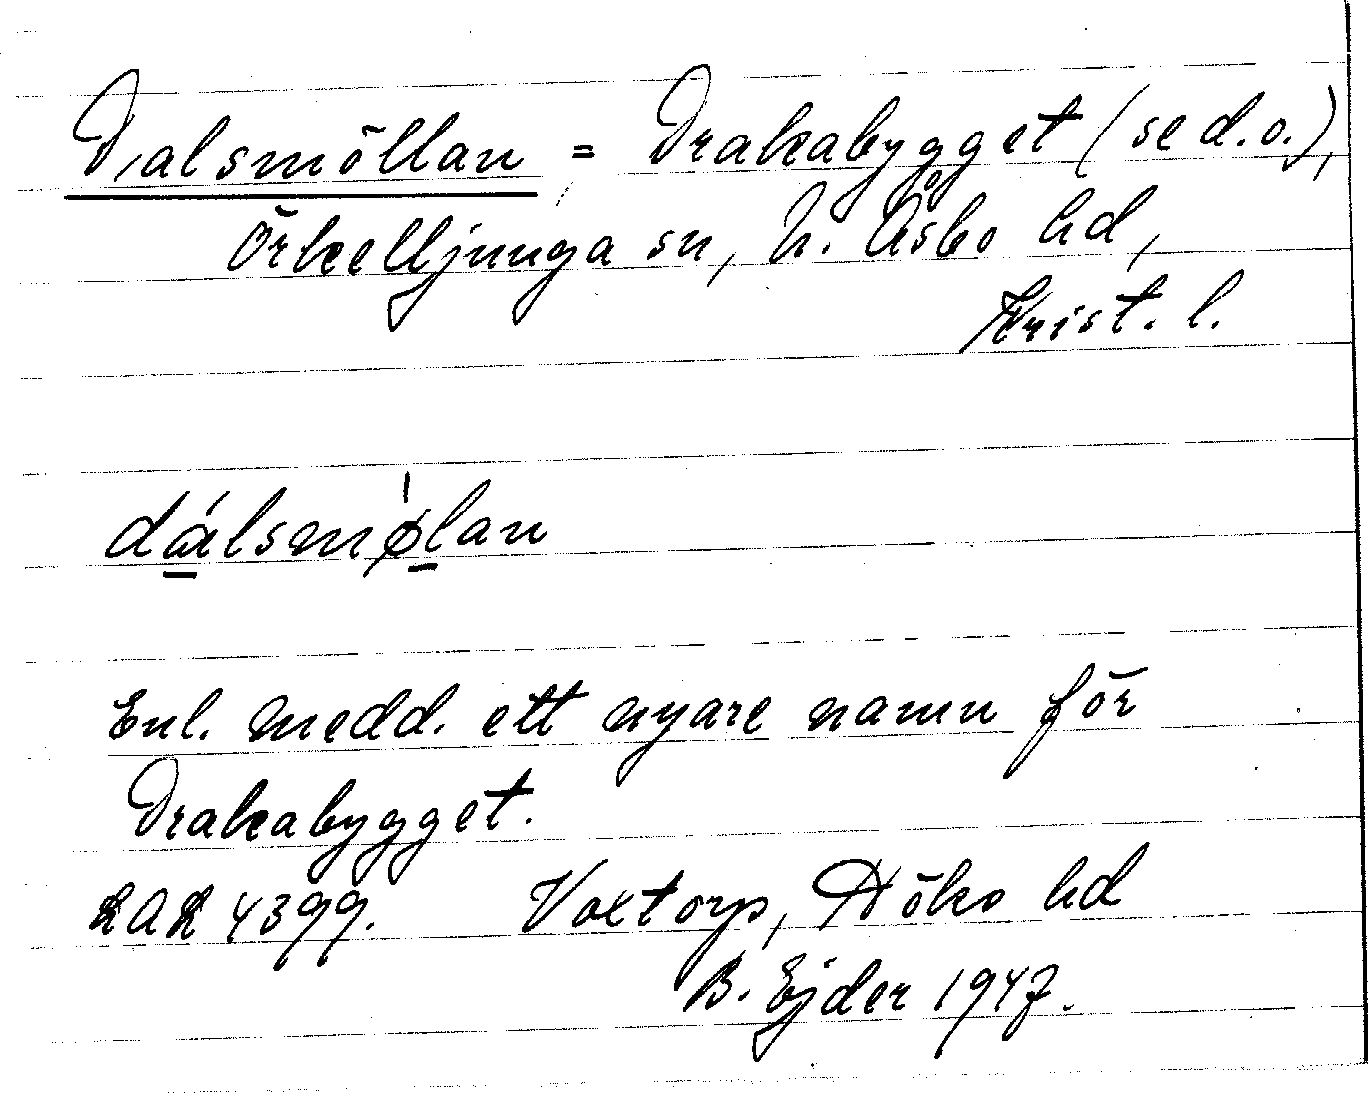 Dalsmöllan = Drakabygget (se d.o.),
Örkelljunga sn, N. Åsbo hd,
Krist. l.
dálsmǿlan
Enl. medd. ett nyare namn för
Drakabygget.
LAL 4399. Voxtorp, Höks hd
B. Ejder 1947.